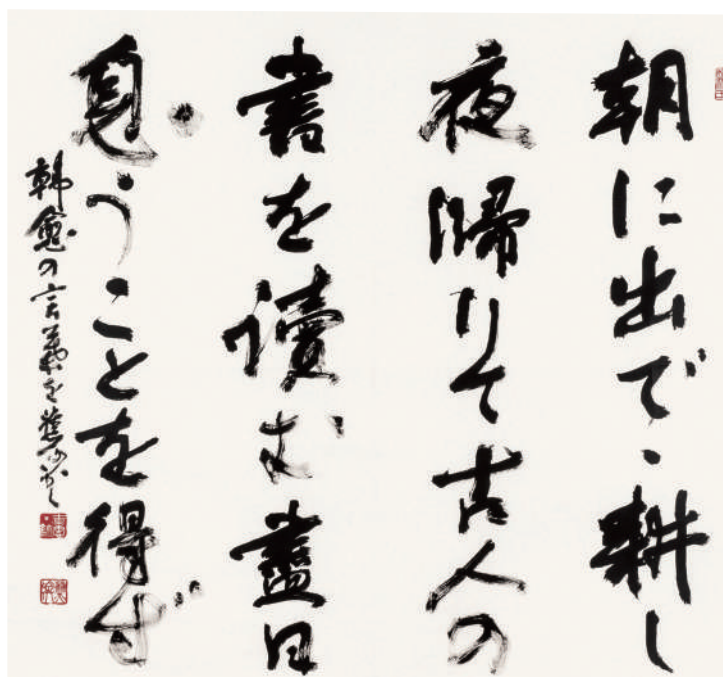 朝に出で、耕し
夜歸りて古人の
書を読む盡日
息うことを得ず
韓愈の言葉を